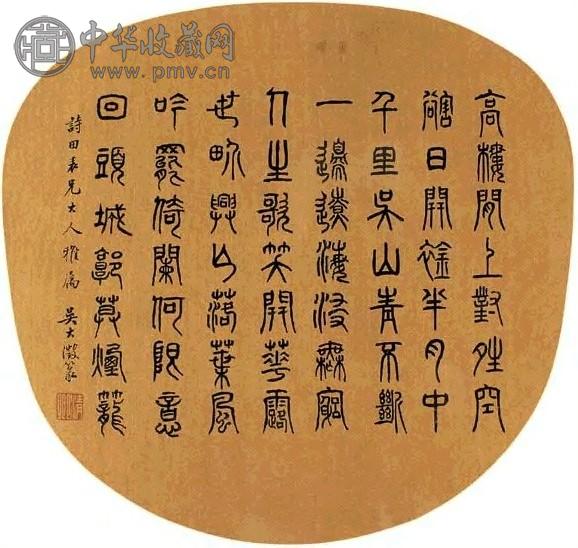 中华收藏网
www.pmv.cn
高樓閒上對晴空
豁日開襟半月中
千里吳山青不斷
一邊遼海浸無窮
人生歌笑開華露
世畍興亡落葉風
吟罷倚闌何限意
回頭城郭莫煙籠
詩田表兄大人雅屬 吳大澂篆